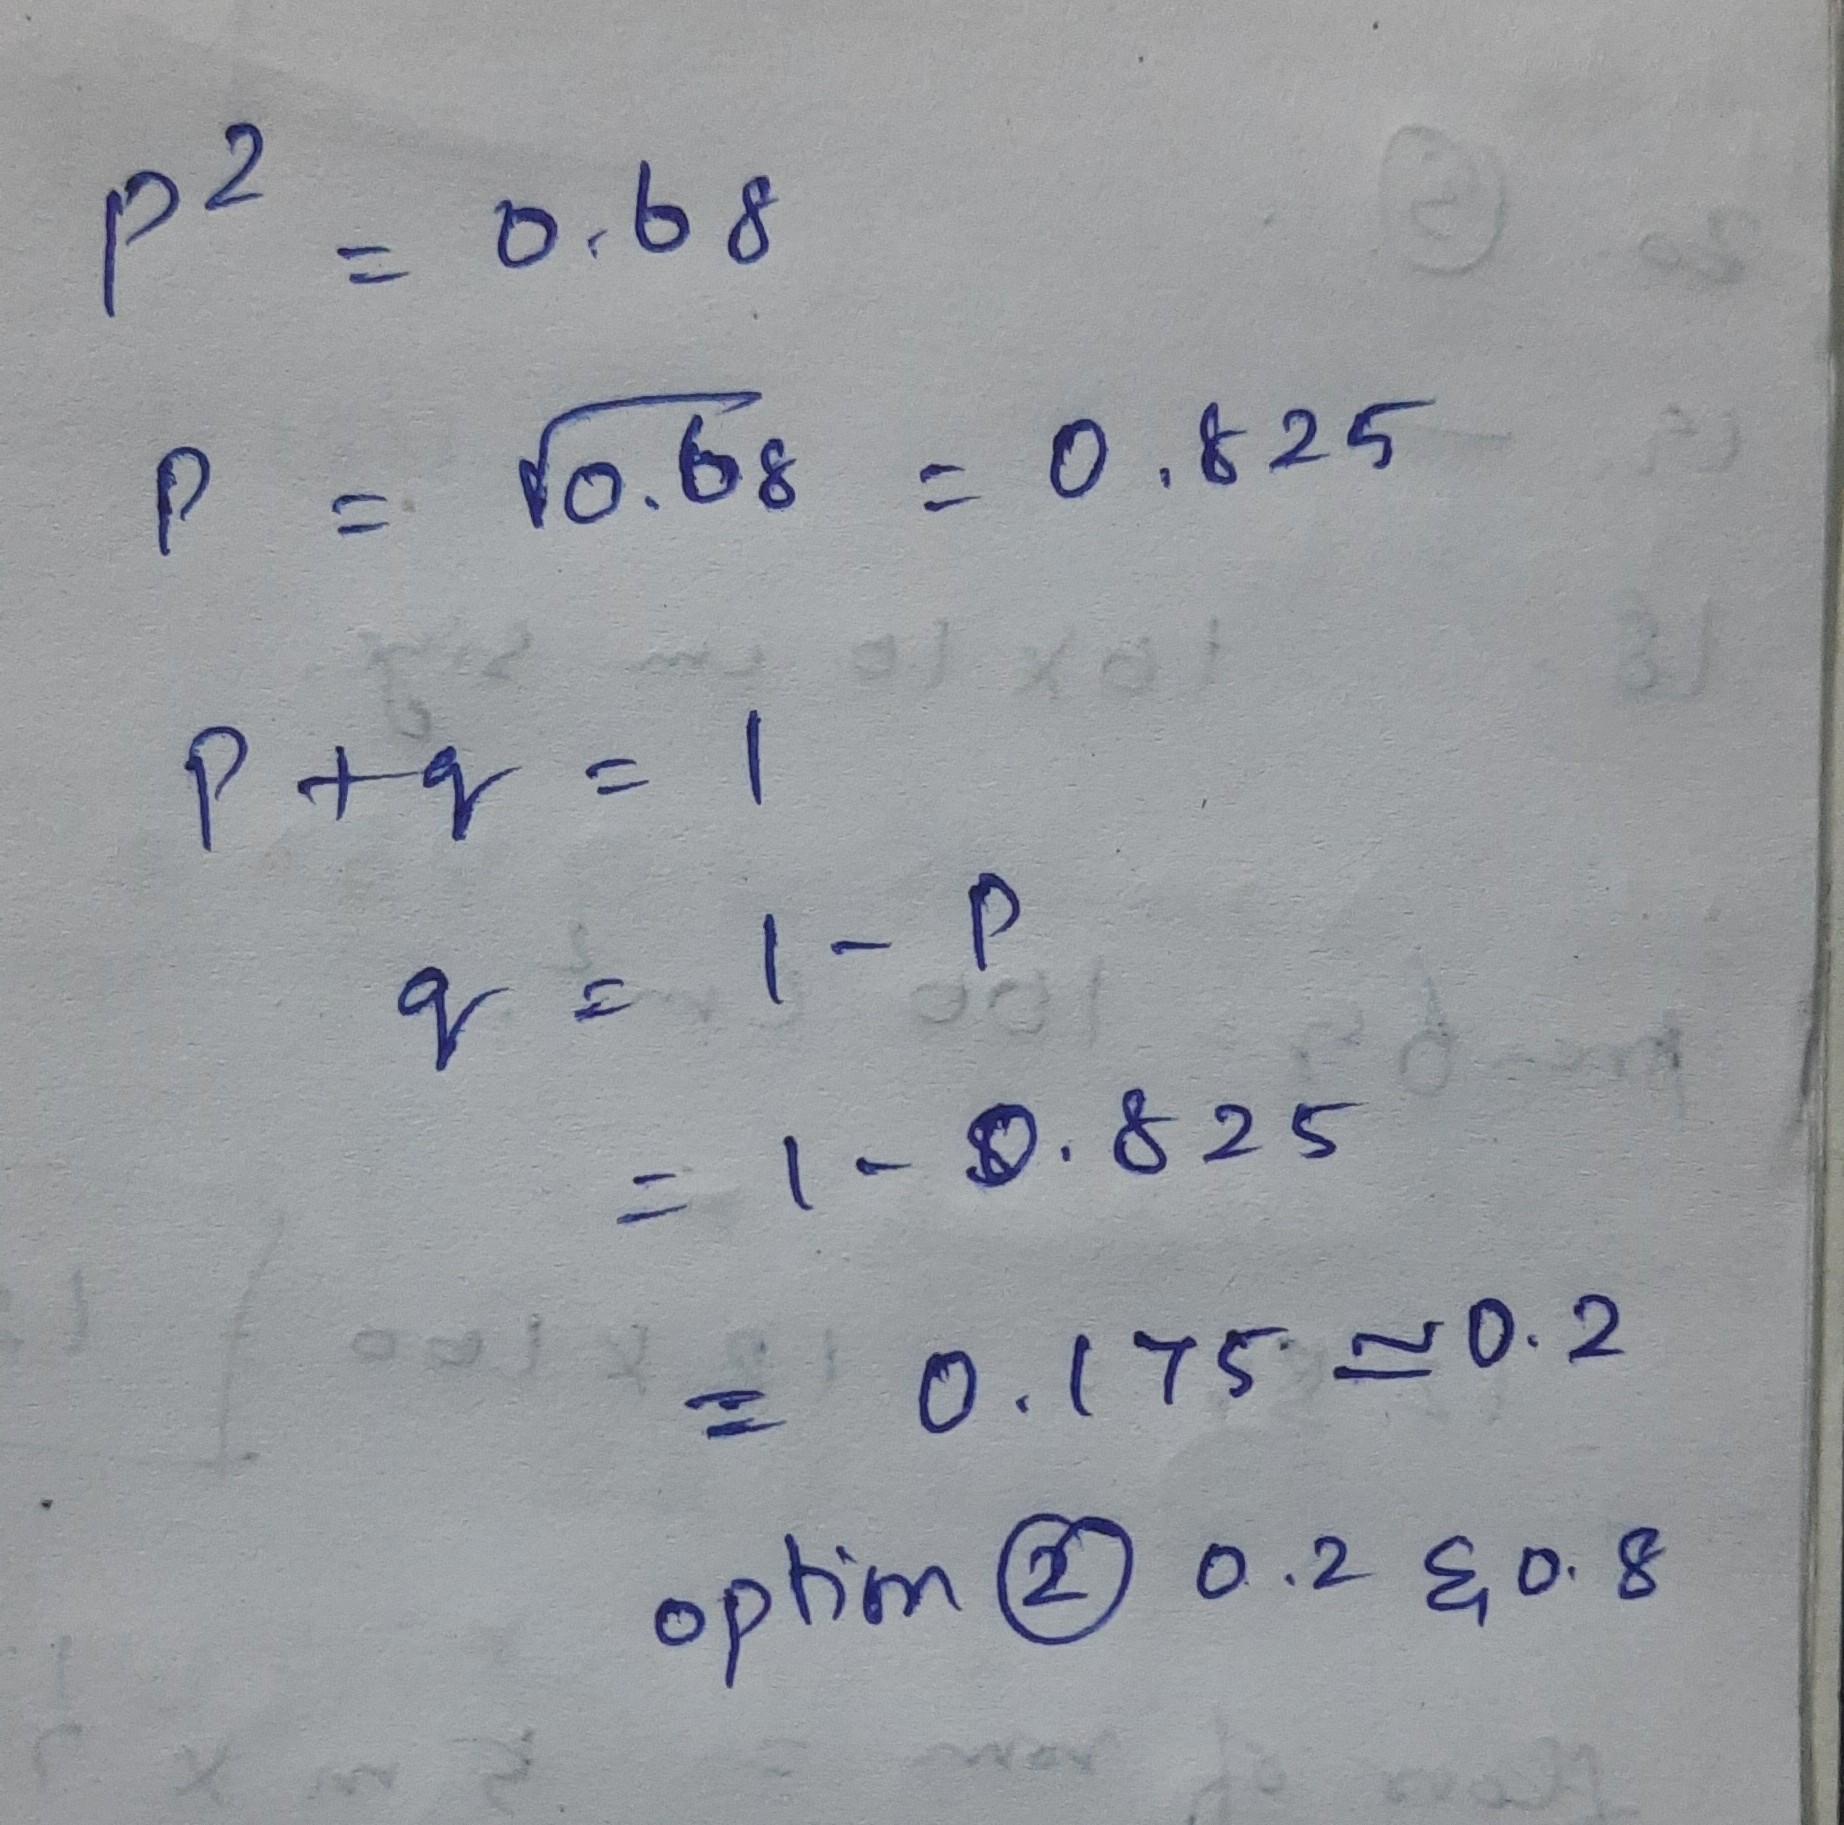 p² = 0.68
p = √0.68 = 0.825
p + q = 1
q = 1 - p
= 1 - 0.825
= 0.175 ≃ 0.2
option ② 0.2 & 0.8